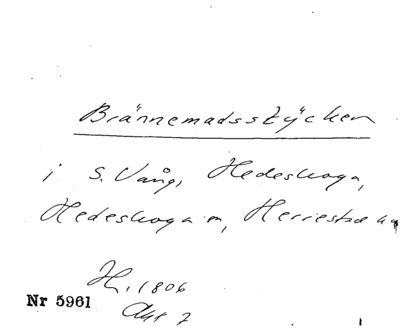 Brännemadsstycken
i S. Vång, Hedeskoga,
Hedeskoga sn, Herrestad hd
H, 1806
Nr 5961
Akt 7